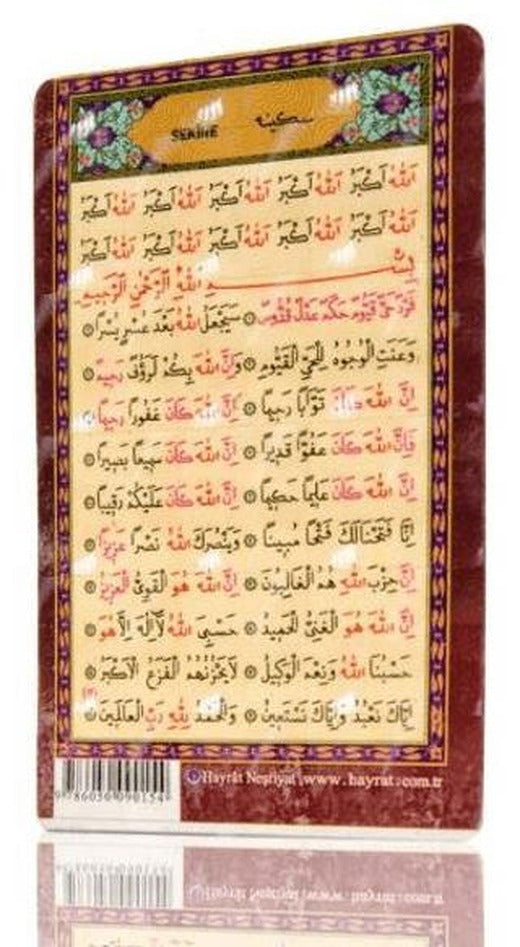 SEKİNE سكينه
اَللّٰهُ اَكْبَرُ اَللّٰهُ اَكْبَرُ اَللّٰهُ اَكْبَرُ اَللّٰهُ اَكْبَرُ اَللّٰهُ اَكْبَرُ
اَللّٰهُ اَكْبَرُ اَللّٰهُ اَكْبَرُ اَللّٰهُ اَكْبَرُ اَللّٰهُ اَكْبَرُ اَللّٰهُ اَكْبَرُ
بِسْمِ اللّٰهِ الرَّحْمٰنِ الرَّحِيمِ
فَرْدٌ حَىٌّ قَيُّومٌ حَكَمٌ عَدْلٌ قُدُّوسٌ ۞ سَيَجْعَلُ اللّٰهُ بَعْدَ عُسْرٍ يُسْرًا ۞
وَعَنَتِ الْوُجُوهُ لِلْحَىِّ الْقَيُّومِ ۞ وَاِنَّ اللّٰهَ بِكُمْ لَرَؤُفٌ رَحِيمٌ ۞
اِنَّ اللّٰهَ كَانَ تَوَّابًا رَحِيمًا ۞ اِنَّ اللّٰهَ كَانَ غَفُورًا رَحِيمًا ۞
فَاِنَّ اللّٰهَ كَانَ عَفُوًّا قَدِيرًا ۞ اِنَّ اللّٰهَ كَانَ سَمِيعًا بَصِيرًا ۞
اِنَّ اللّٰهَ كَانَ عَلِيمًا حَكِيمًا ۞ اِنَّ اللّٰهَ كَانَ عَلَيْكُمْ رَقِيبًا ۞
اِنَّا فَتَحْنَالَكَ فَتْحًا مُبِينًا ۞ وَيَنْصُرَكَ اللّٰهُ نَصْرًا عَزِيزًا ۞
اِنَّ حِزْبَ اللّٰهِ هُمُ الْغَالِبُونَ ۞ اِنَّ اللّٰهَ هُوَ الْقَوِىُّ الْعَزِيزُ ۞
اِنَّ اللّٰهَ هُوَ الْغَنِىُّ الْحَمِيدُ ۞ حَسْبِىَ اللّٰهُ لَٓا اِلٰهَ اِلَّا هُوَ ۞
حَسْبُنَا اللّٰهُ وَنِعْمَ الْوَكِيلُ ۞ لَا يَحْزُنُهُمُ الْفَزَعُ الْاَكْبَرُ ۞
اِيَّاكَ نَعْبُدُ وَاِيَّاكَ نَسْتَعِينُ ۞ وَالْحَمْدُ لِلّٰهِ رَبِّ الْعَالَمِينَ ۞
Hayrât Neşriyat www.hayrat.com.tr
9 786056 090154